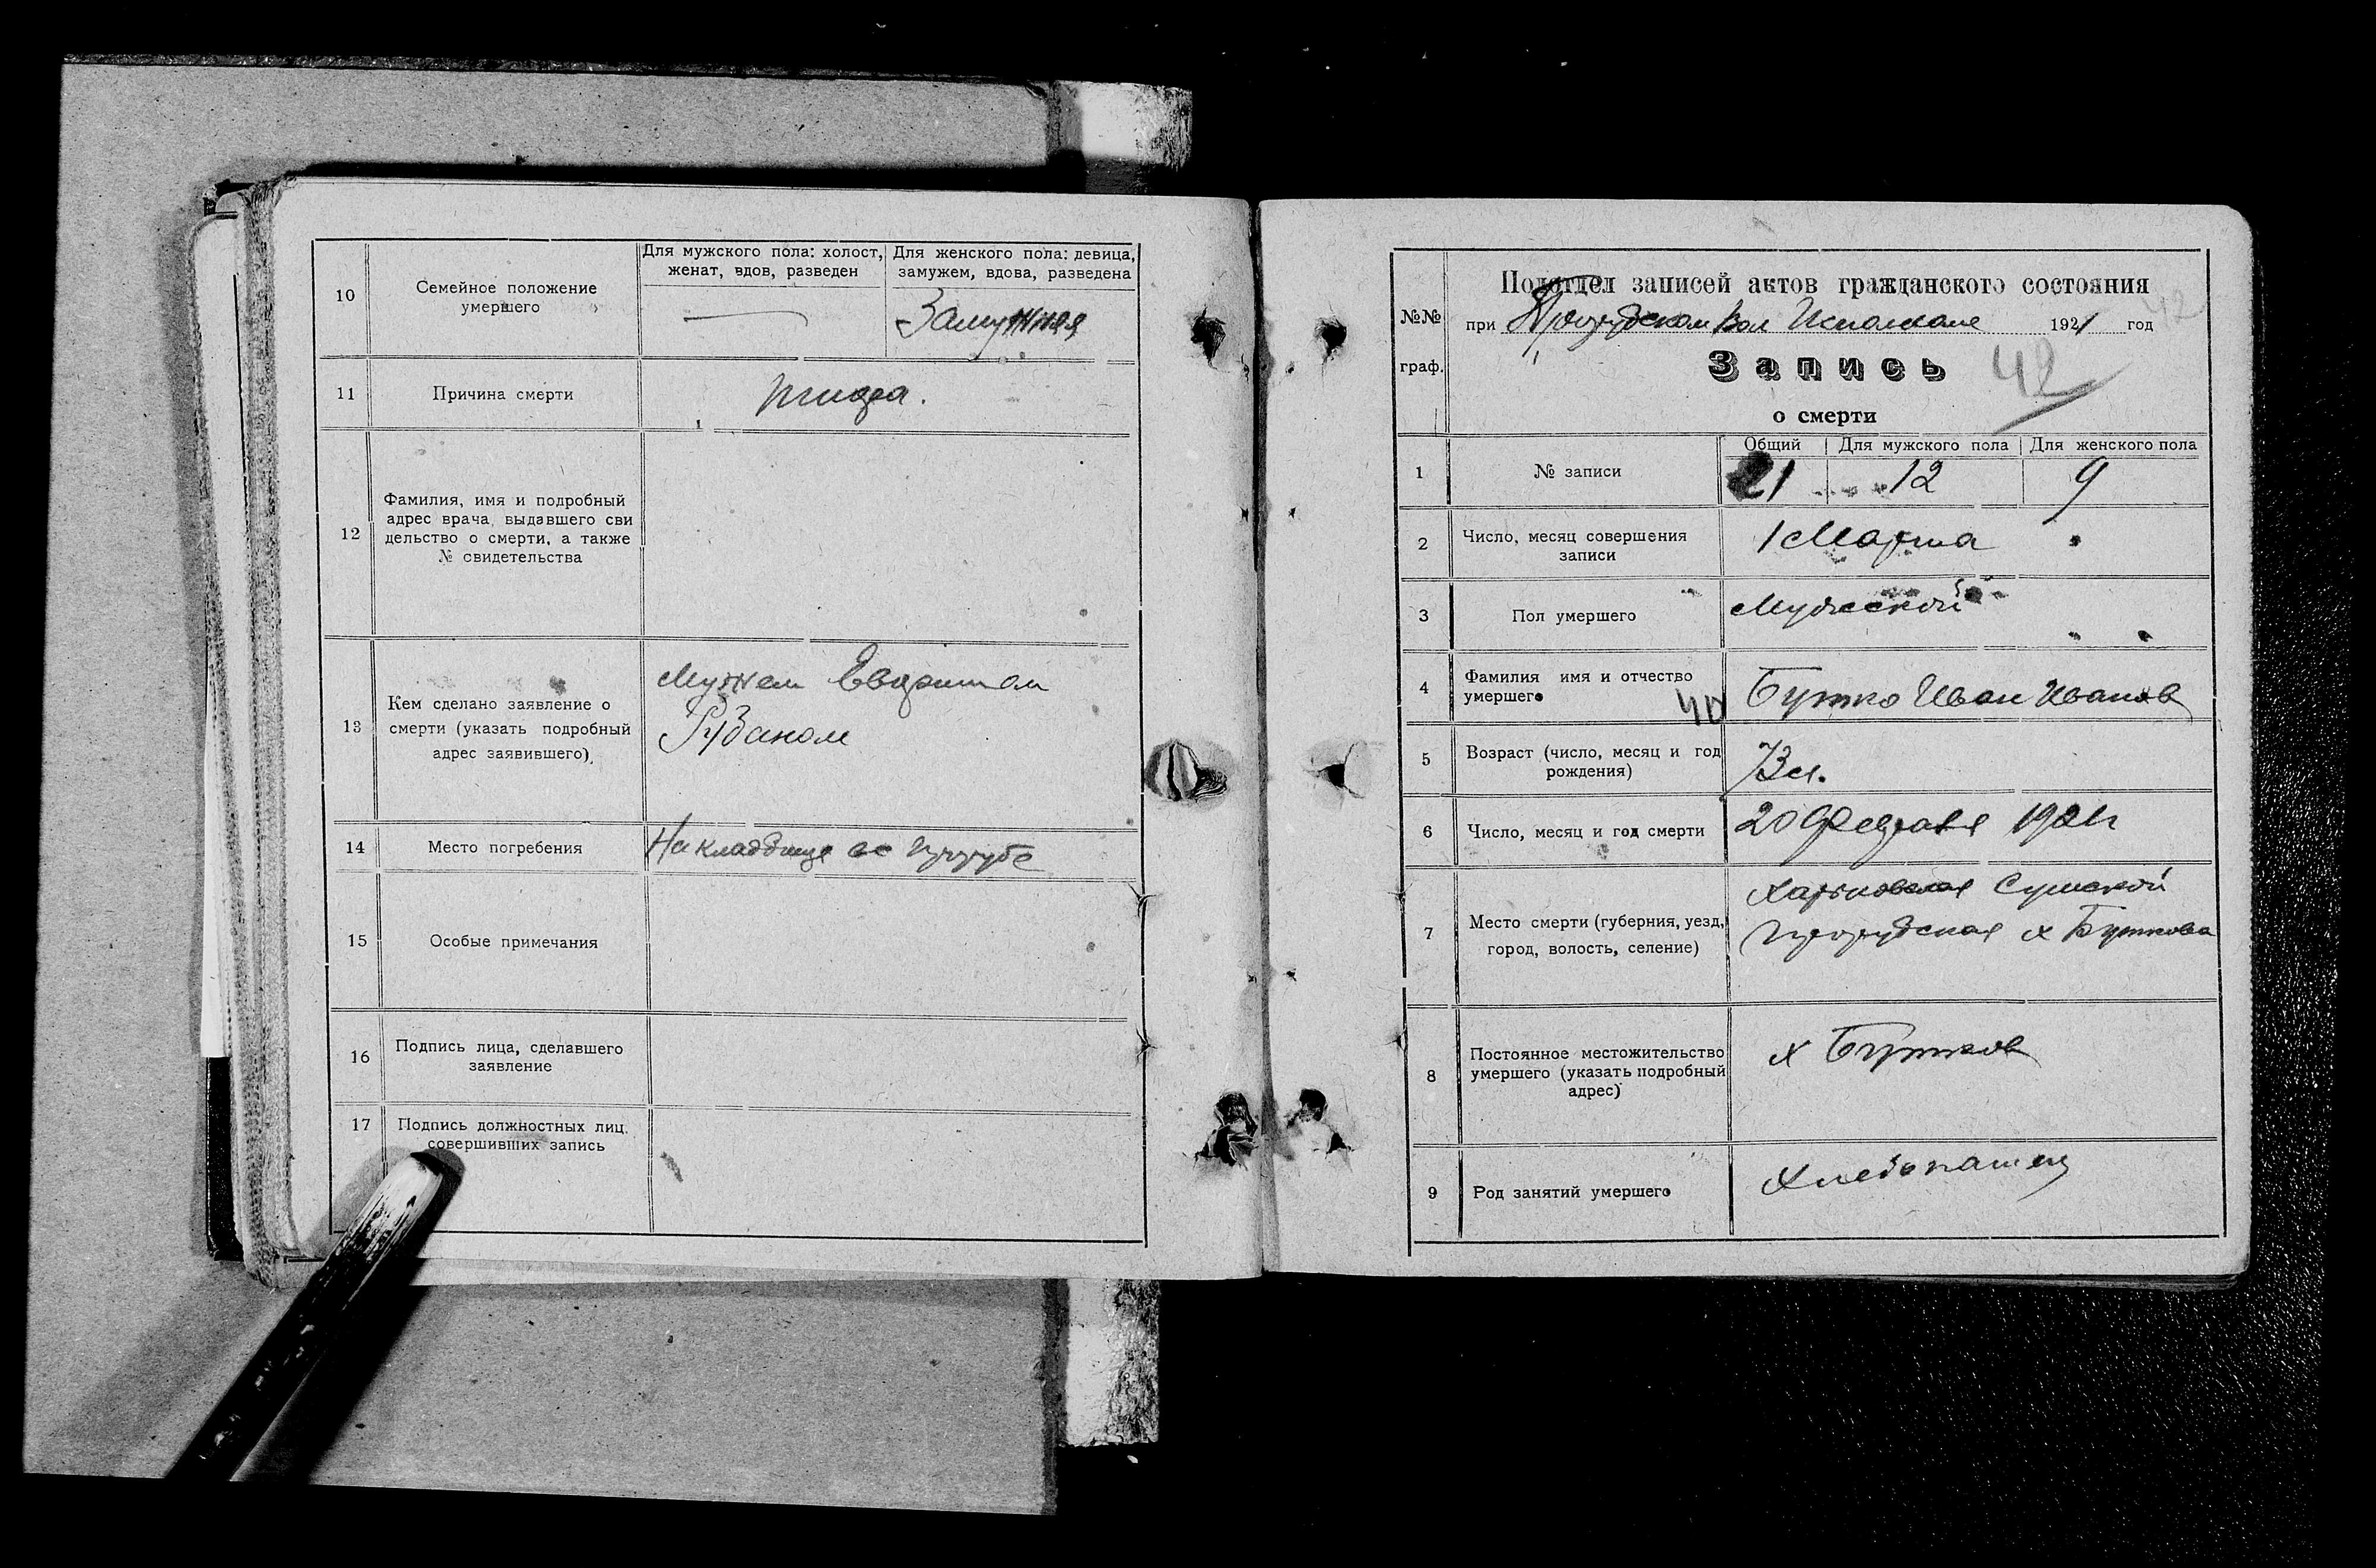 10
Семейное положение
умершего
Для мужского пола: холост,
женат, вдов, разведен
Для женского пола: девица,
замужем, вдова, разведена
Замужняя
11
Причина смерти
12
Фамилия, имя и подробный
адрес врача, выдавшего сви
дельство о смерти, а также
№ свидетельства
13
Кем сделано заявление о
смерти (указать подробный
адрес заявившего)
Мужем
14
Место погребения
На кладбище
15
Особые примечания
16
Подпись лица, сделавшего
заявление
17
Подпись должностных лиц,
совершивших запись
№№
граф.
Подотдел записей актов гражданского состояния
при Вол 1921 год
42
Запись
42
о смерти
1
№ записи
Общий
Для мужского пола
Для женского пола
21
12
9
2
Число, месяц совершения
записи
1 Марта
3
Пол умершего
Мужской
4
Фамилия имя и отчество
умершего
40
Бутко Иван Иванов
5
Возраст (число, месяц и год
рождения)
73 л.
6
Число, месяц и год смерти
20 Февраля 1921 г
7
Место смерти (губерния, уезд,
город, волость, селение)
Харьковская Сумской
х Буткова
8
Постоянное местожительство
умершего (указать подробный
адрес)
х Бутков
9
Род занятий умершего
Хлебопашец